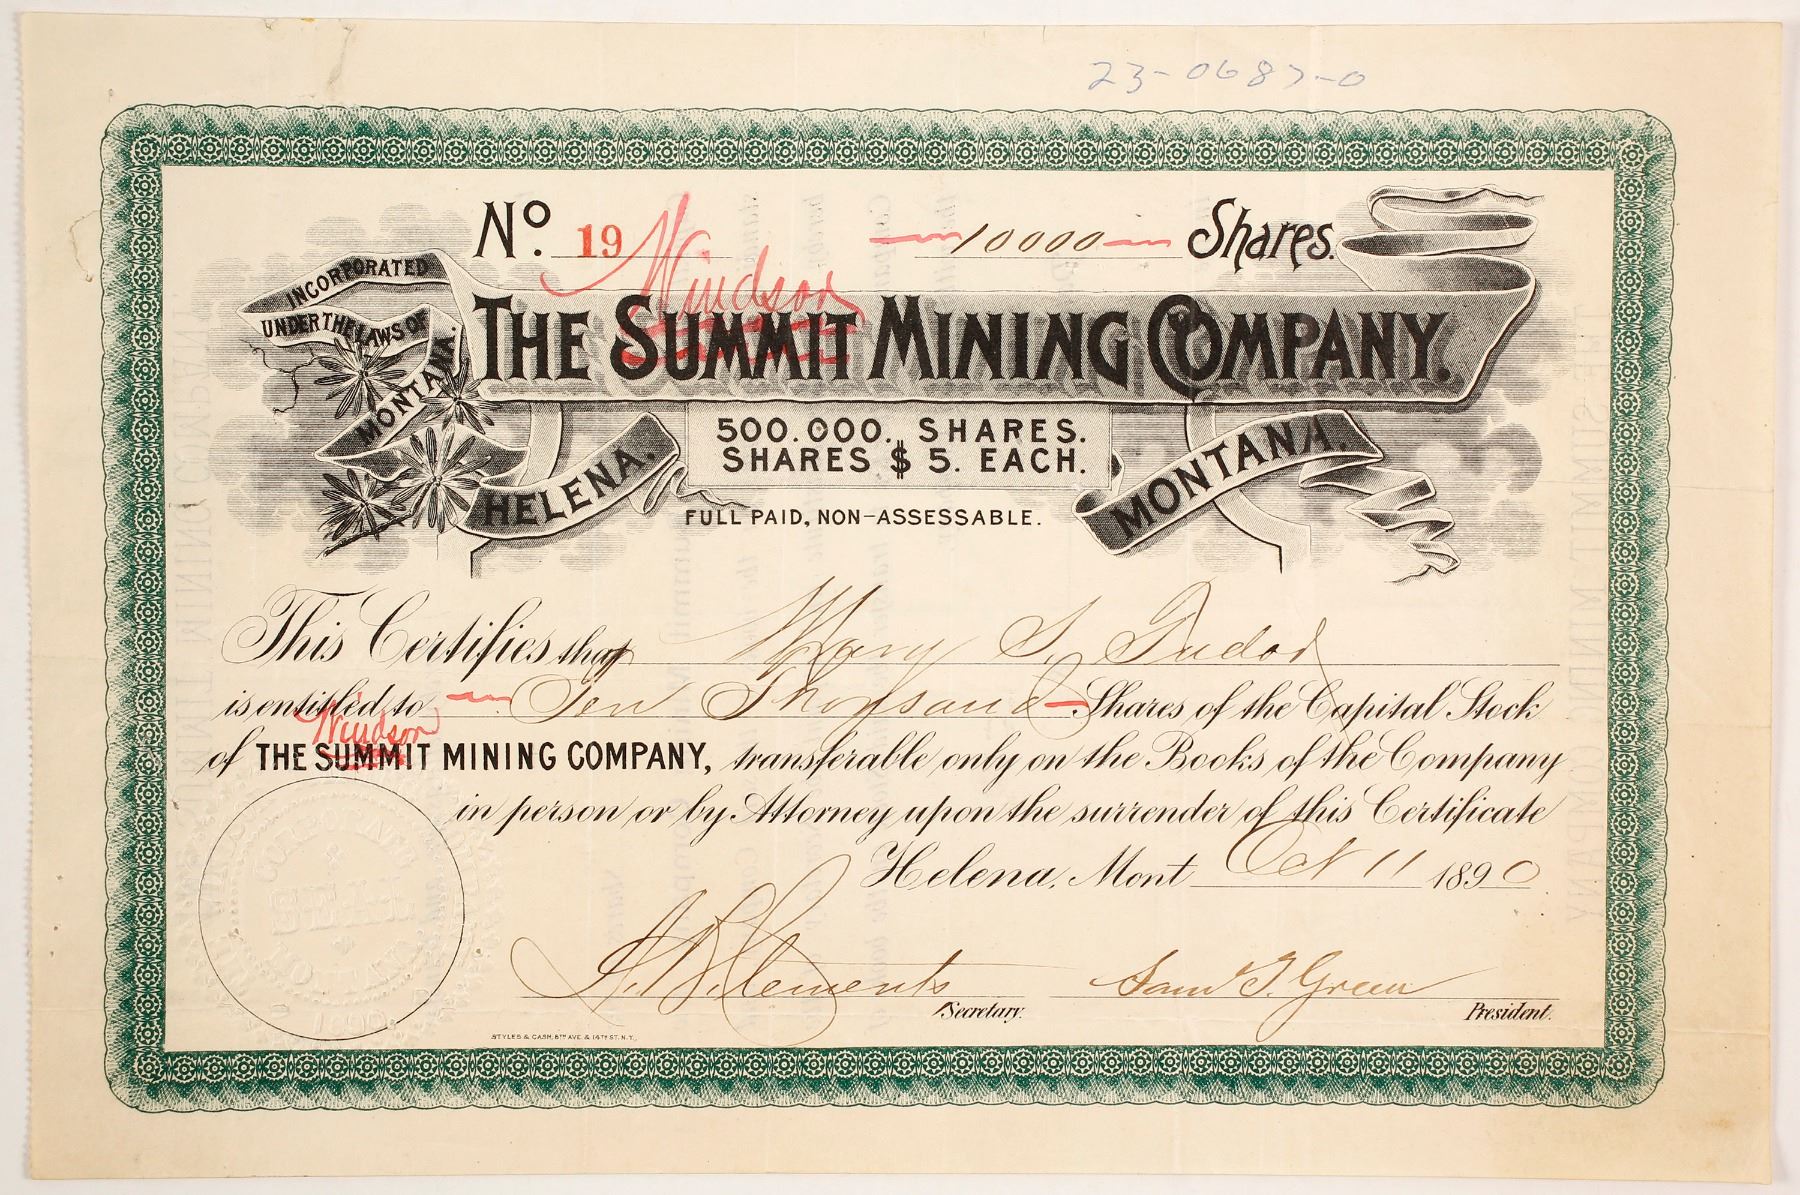 23-0687-0
No. 19 10000 Shares.
Windsor
INCORPORATED
UNDER THE LAWS OF
MONTANA.
THE SUMMIT MINING COMPANY.
500.000. SHARES.
SHARES $ 5. EACH.
HELENA. MONTANA.
FULL PAID, NON-ASSESSABLE.
This Certifies that Mary S. Tudor
is entitled to Ten Thousand Shares of the Capital Stock
Windsor
of THE SUMMIT MINING COMPANY, transferable only on the Books of the Company
in person or by Attorney upon the surrender of this Certificate
Helena, Mont Oct 11 1890
SEAL
1890
A. B. Clements Secretary. Sam T. Green President.
STYLES & CASH, 8TH AVE. & 14TH ST. N.Y.